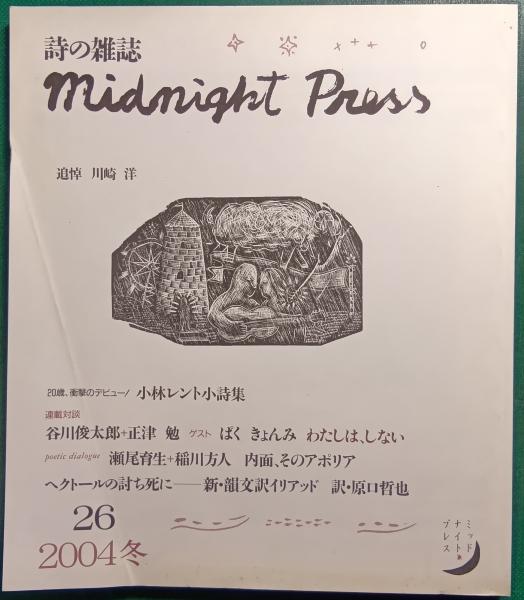 詩の雑誌
midnight Press
追悼 川崎 洋
20歳、衝撃のデビュー! 小林レント小詩集
連載対談
谷川俊太郎+正津 勉 ゲスト ぱく きょんみ わたしは、しない
poetic dialogue 瀬尾育生+稲川方人 内面、そのアポリア
ヘクトールの討ち死に──新・韻文訳イリアッド 訳・原口哲也
26
2004冬
ミッド
ナイト・
プレス